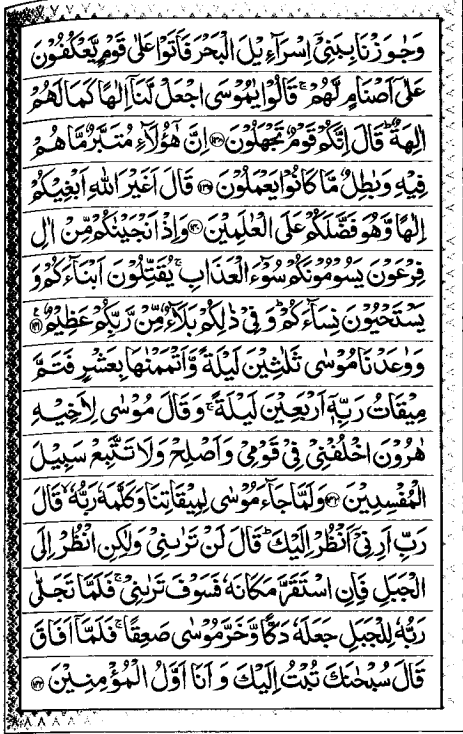 وَجٰوَزْنَا بِبَنِیْۤ اِسْرَآءِیْلَ الْبَحْرَ فَاَتَوْا عَلٰی قَوْمٍ یَّعْكُفُوْنَ
عَلٰۤی اَصْنَامٍ لَّهُمْ ۚ قَالُوْا یٰمُوْسَی اجْعَلْ لَّنَاۤ اِلٰهًا كَمَا لَهُمْ
اٰلِهَةٌ ؕ قَالَ اِنَّكُمْ قَوْمٌ تَجْهَلُوْنَ ﴿۱۳۸﴾ اِنَّ هٰۤؤُلَآءِ مُتَبَّرٌ مَّا هُمْ
فِیْهِ وَبٰطِلٌ مَّا كَانُوْا یَعْمَلُوْنَ ﴿۱۳۹﴾ قَالَ اَغَیْرَ اللّٰهِ اَبْغِیْكُمْ
اِلٰهًا وَّهُوَ فَضَّلَكُمْ عَلَی الْعٰلَمِیْنَ ﴿۱۴۰﴾ وَاِذْ اَنْجَیْنٰكُمْ مِّنْ اٰلِ
فِرْعَوْنَ یَسُوْمُوْنَكُمْ سُوْٓءَ الْعَذَابِ ۚ یُقَتِّلُوْنَ اَبْنَآءَكُمْ وَ
یَسْتَحْیُوْنَ نِسَآءَكُمْ ؕ وَفِیْ ذٰلِكُمْ بَلَآءٌ مِّنْ رَّبِّكُمْ عَظِیْمٌ ﴿۱۴۱﴾
وَوٰعَدْنَا مُوْسٰی ثَلٰثِیْنَ لَیْلَةً وَّاَتْمَمْنٰهَا بِعَشْرٍ فَتَمَّ
مِیْقَاتُ رَبِّهٖۤ اَرْبَعِیْنَ لَیْلَةً ۚ وَقَالَ مُوْسٰی لِاَخِیْهِ
هٰرُوْنَ اخْلُفْنِیْ فِیْ قَوْمِیْ وَاَصْلِحْ وَلَا تَتَّبِعْ سَبِیْلَ
الْمُفْسِدِیْنَ ﴿۱۴۲﴾ وَلَمَّا جَآءَ مُوْسٰی لِمِیْقَاتِنَا وَكَلَّمَهٗ رَبُّهٗ ۙ قَالَ
رَبِّ اَرِنِیْۤ اَنْظُرْ اِلَیْكَ ؕ قَالَ لَنْ تَرٰىنِیْ وَلٰكِنِ انْظُرْ اِلَی
الْجَبَلِ فَاِنِ اسْتَقَرَّ مَكَانَهٗ فَسَوْفَ تَرٰىنِیْ ۚ فَلَمَّا تَجَلّٰی
رَبُّهٗ لِلْجَبَلِ جَعَلَهٗ دَكًّا وَّخَرَّ مُوْسٰی صَعِقًا ۚ فَلَمَّاۤ اَفَاقَ
قَالَ سُبْحٰنَكَ تُبْتُ اِلَیْكَ وَاَنَا اَوَّلُ الْمُؤْمِنِیْنَ ﴿۱۴۳﴾